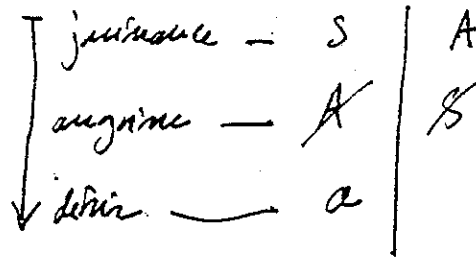 jouissance — S | A
angoisse — A̸ | S̸
désir — a